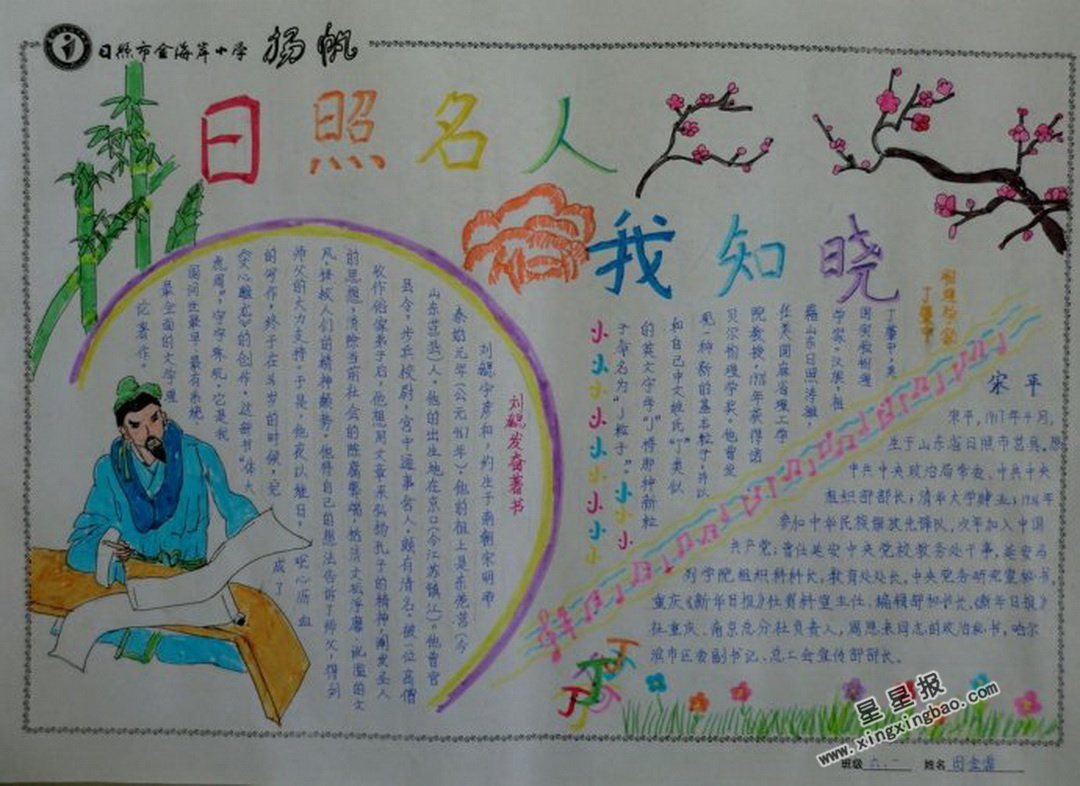 日照市金海岸小学 扬帆
日照名人
我知晓
刘勰发奋著书
刘勰字彦和,约生于南朝宋明帝
泰始元年(公元465年)。他的祖上是东莞莒(今
山东莒县)人。他的出生地在京口(今江苏镇江)。他曾官
县令、步兵校尉、宫中通事舍人,颇有清名。被一位高僧
收作俗家弟子后,他想用文章来弘扬孔子的精神,阐发圣人
的思想,清除当前社会的陈腐弊端,拯济文坛浮靡、讹滥的文
风,拯救人们的精神颓势。他将自己的想法告诉了师父,得到
师父的大力支持。于是,他夜以继日,呕心沥血
的写作,终于在35岁的时候,完成了
《文心雕龙》的创作。这部书“体大
虑周”,字字珠玑。它是我
国问世最早、最有系统、
最全面的文学理
论著作。
丁肇中
丁肇中,美
国实验物理
学家。汉族,祖
籍山东日照涛雒,
任美国麻省理工学
院教授,1976年获得诺
贝尔物理学奖。他曾发
现一种新的基本粒子,并以
和自己中文姓氏“丁”类似
的英文字母“J”将那种新粒
子命名为“J粒子”。
宋平
宋平,1917年4月,
生于山东省日照市莒县。原
中共中央政治局常委、中共中央
组织部部长;清华大学肄业;1936年
参加中华民族解放先锋队,次年加入中国
共产党;曾任延安中央党校教务处干事,延安马
列学院组织科科长,教育处处长,中央党务研究室秘书,
重庆《新华日报》社资料室主任、编辑部秘书长,《新华日报》
社重庆、南京总分社负责人,周恩来同志的政治秘书,哈尔
滨市区委副书记、总工会宣传部部长。
星星报
www.xingxingbao.com
班级 六.一 姓名